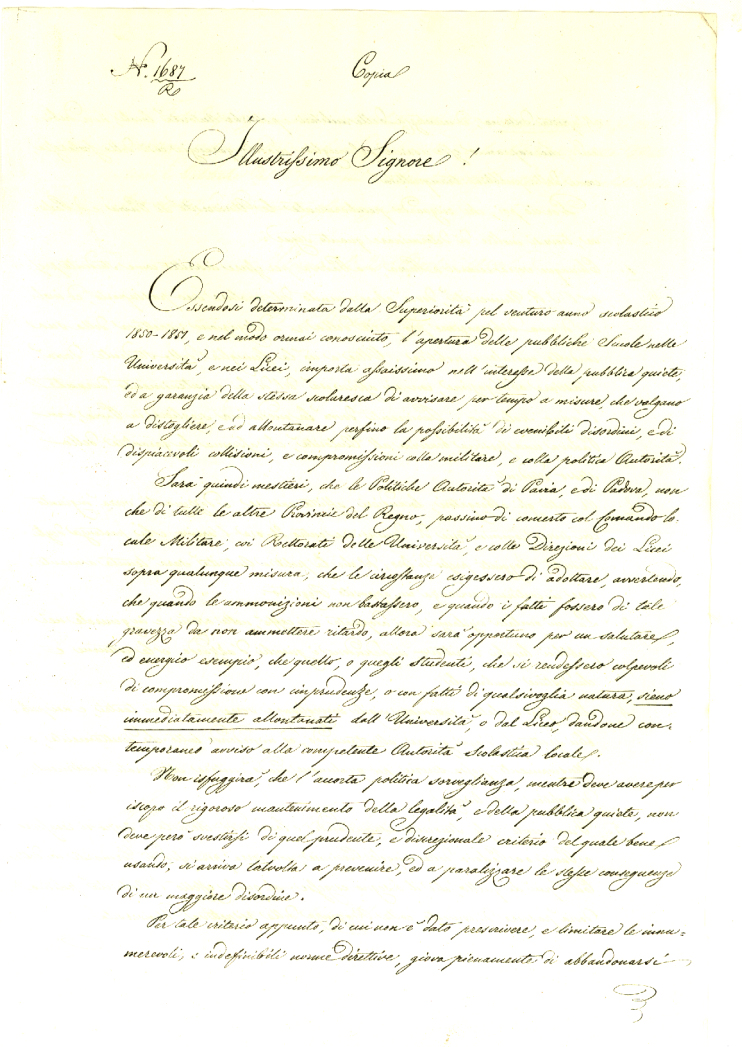 N. 1687
Copia
R
Illustrissimo Signore!
Essendosi determinata dalla Superiorità pel venturo anno scolastico
1850-1851, e nel modo oramai conosciuto, l'apertura delle pubbliche Scuole nelle
Università, e nei Licei, importa assaissimo nell'interesse della pubblica quiete,
ed a garanzia della stessa scolaresca di avvisare per tempo a misure, che valgano
a distogliere, e ad allontanare perfino la possibilità di evenibili disordini, e di
dispiacevoli collisioni, e compromissioni colla militare, e colla politica Autorità.
Sarà quindi mestieri, che le Politiche Autorità di Pavia, e di Padova, non
che di tutte le altre Provincie del Regno, passino di concerto col Comando lo-
cale Militare, coi Rettorati delle Università, e colle Direzioni dei Licei
sopra qualunque misura, che le circostanze esigessero di adottare, avvertendo,
che quando le ammonizioni non bastassero, e quando i fatti fossero di tale
gravezza da non ammettere ritardo, allora sarà opportuno per un salutare,
ed energico esempio, che quello, o quegli studenti, che si rendessero colpevoli
di compromissione con imprudenze, o con fatti di qualsivoglia natura, sieno
immediatamente allontanati dall'Università, o dal Liceo, dandone con-
temporaneo avviso alla competente Autorità Scolastica locale.
Non isfuggirà, che l'accorta politica sorveglianza, mentre deve avere per
iscopo il rigoroso mantenimento della legalità, e della pubblica quiete, non
deve però svestirsi di quel prudente, e discrezionale criterio del quale bene
usando, si arriva talvolta a prevenire, ed a paralizzare le stesse conseguenze
di un maggiore disordine.
Per tale criterio appunto, di cui non è dato prescrivere, e limitare le innu-
merevoli, e indefinibili norme direttive, giova pienamente di abbandonarsi